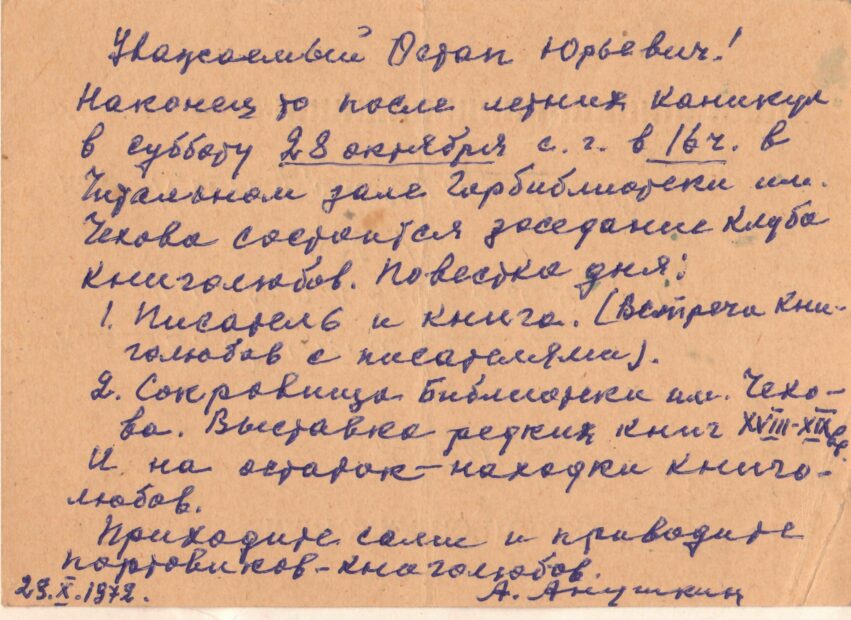 Уважаемый Остап Юрьевич!
Наконец то после летних каникул
в субботу 28 октября с. г. в 16 ч. в
Читальном зале Горбиблиотеки им.
Чехова состоится заседание Клуба
книголюбов. Повестка дня:
1. Писатель и книга. (Встреча кни-
голюбов с писателями).
2. Сокровища Библиотеки им. Чехо-
ва. Выставка редких книг XVIII-XIX вв.
И на остаток - находки книго-
любов.
Приходите сами и приводите
портовиков-книголюбов.
23.X.1972. А. Анушкин